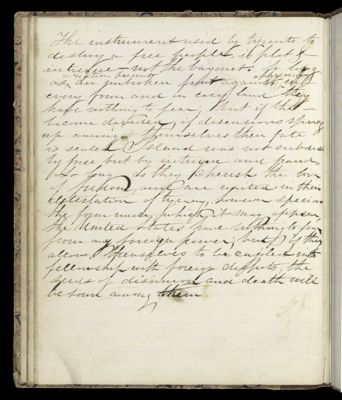 The instrument used by tyrants to
destroy a free people, is plot &
intrigue – not the bayonet. So long
as a nation presents
an unbroken front against oppressing
every foe and in every land they
have nothing to fear, But if they
become divided, if dissensions spring
up amongst themselves their fate
is sealed. Poland was not subdued
by force but by intrigue and fraud,
So long as they cherish the love
of freedom and are united in their
detestation of tyrany, however specious
the form under which it may appear,
the United States have nothing to fear
from any foreign power; but if they
allow themselves to be enticed into
fellowship with foreign despots, the
seeds of dissension and death will
be sown among them